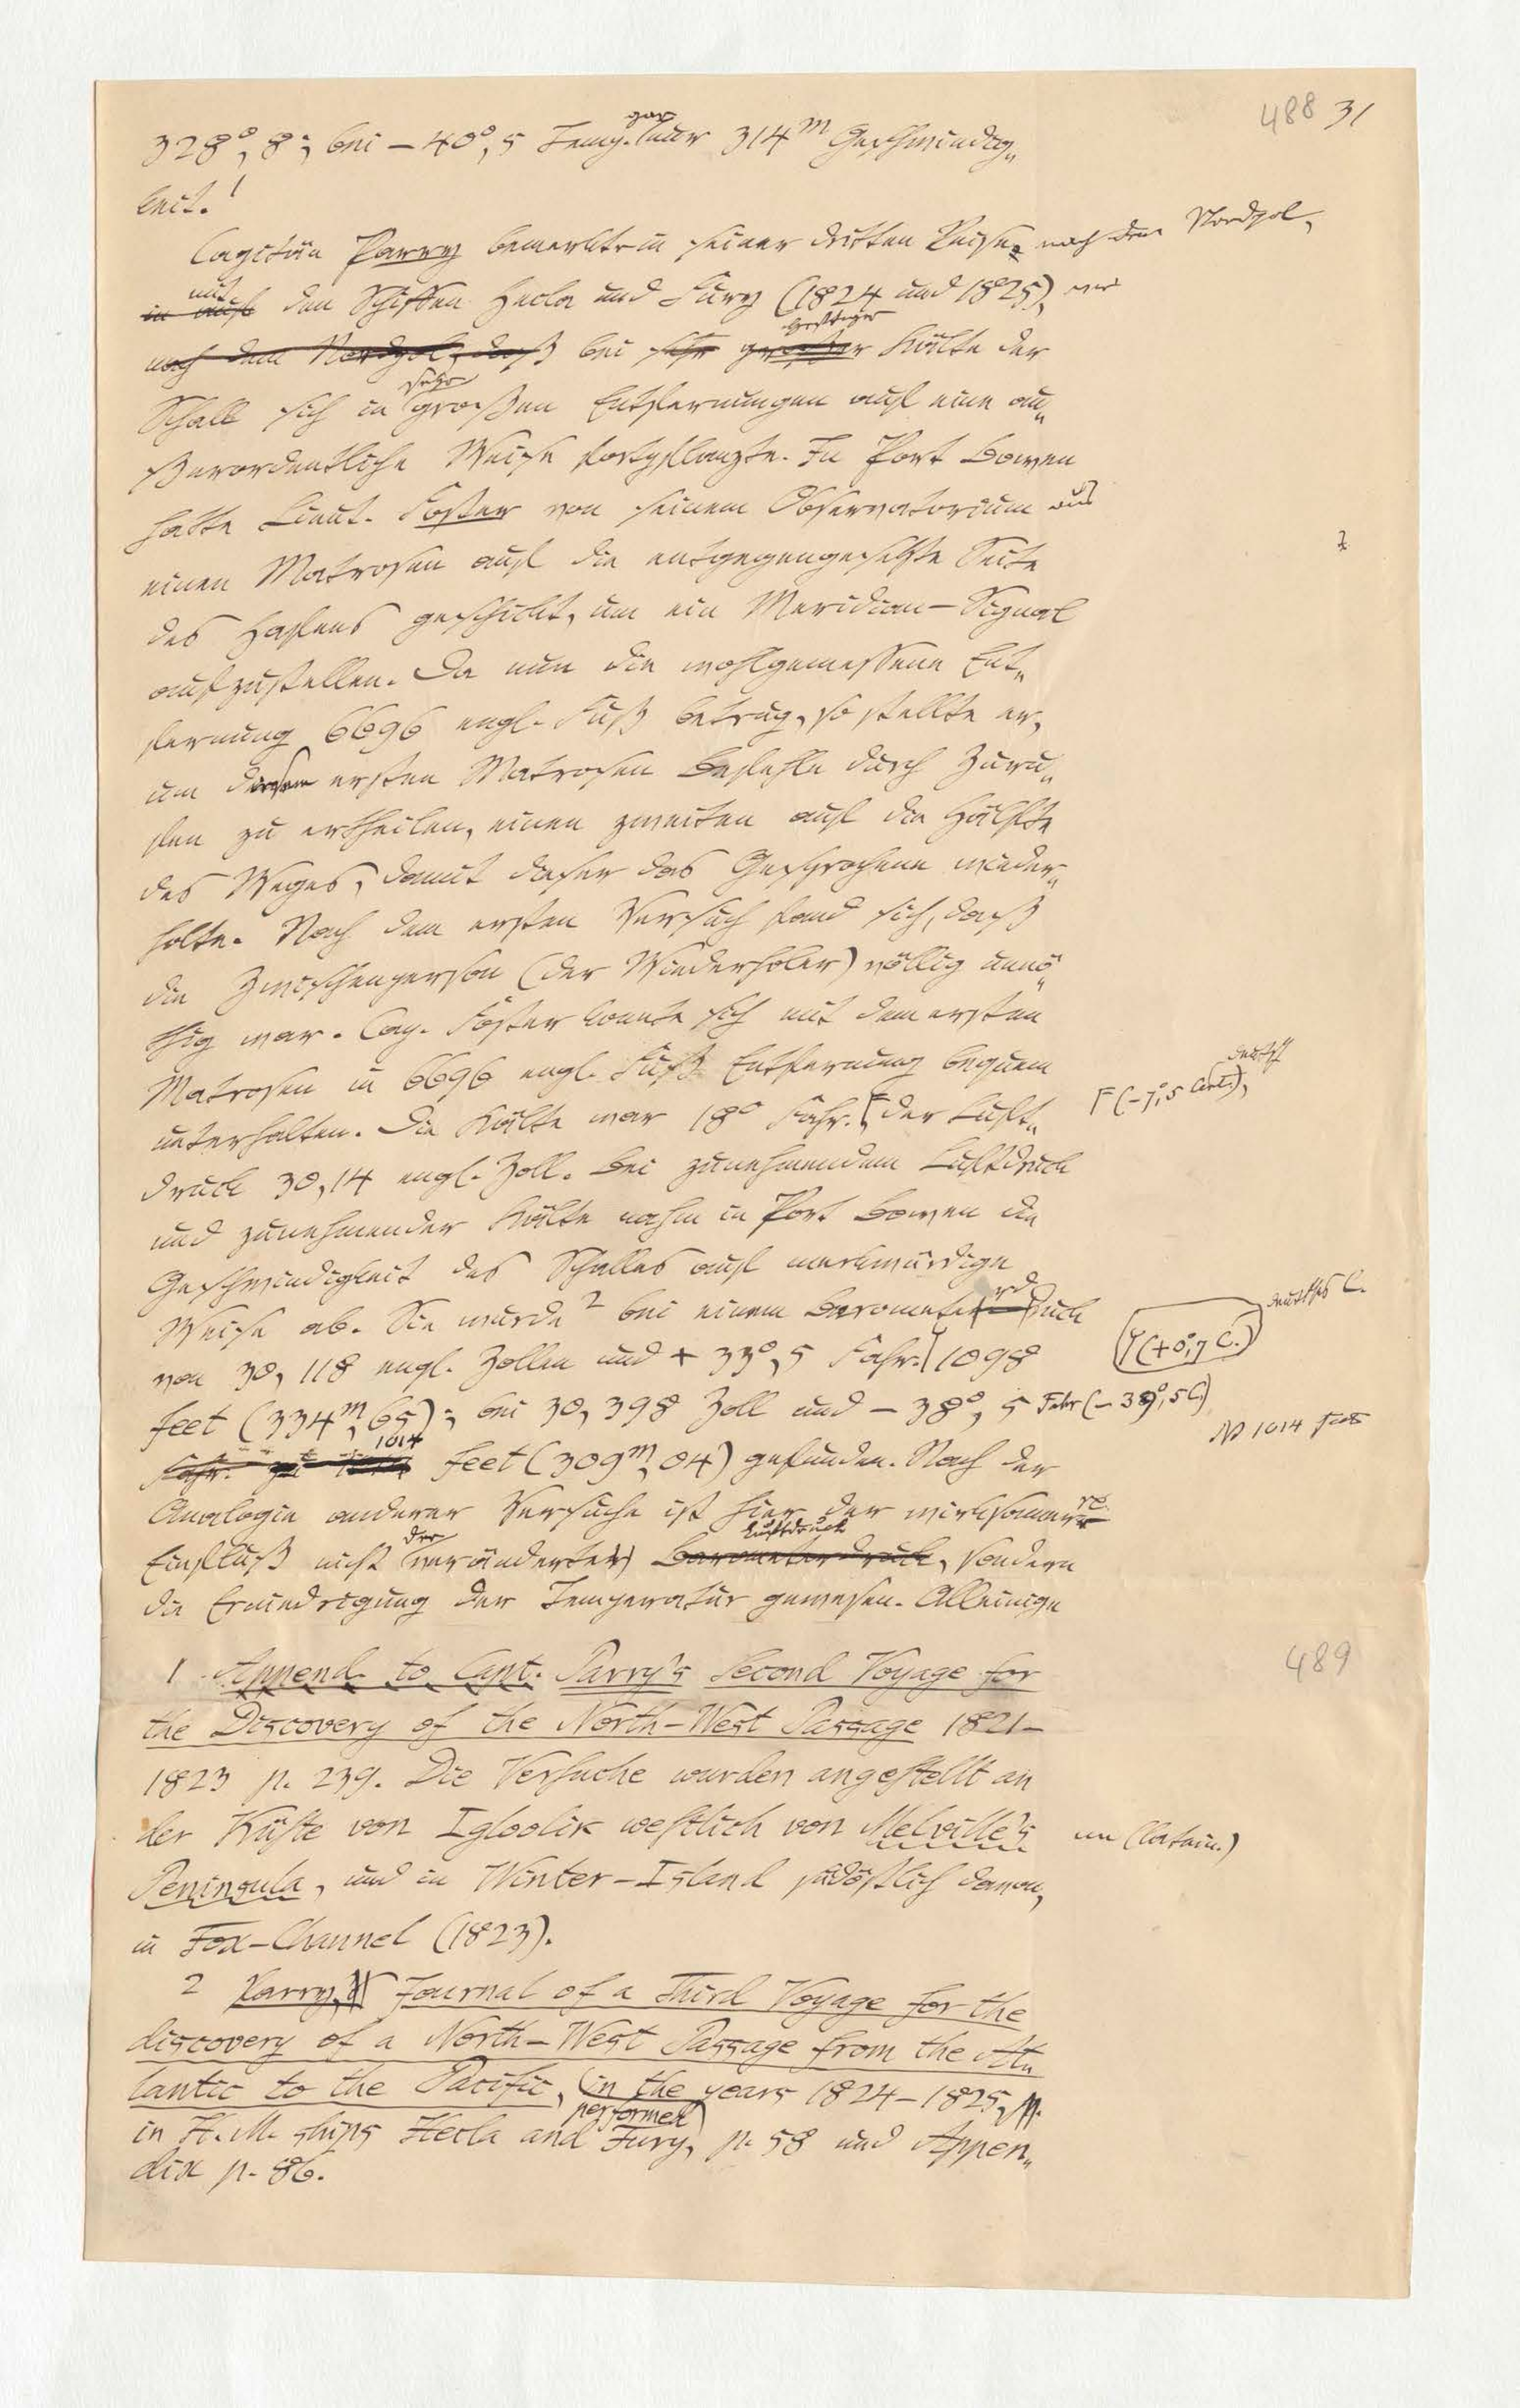 488 31
328°, 8; bei – 40°, 5 Temp. gar nur 314m Geschwindig„
keit. 1
Capitän Parry bemerkte in seiner dritten Reise nach dem Nordpol,
in auf mit den Schiffen Hecla und Fury (1824 und 1825), wie
nach dem Nordpol, daß bei sehr großer heftiger Kälte der
Schall sich in sehr großen Entfernungen auf eine au„
ßerordentliche Weise fortpflanzte. In Port Bowen
hatte Lieut. Foster von seinem Observatorium aus
einen Matrosen auf die entgegengesetzte Seite
des Hafens geschickt, um ein Meridian–Signal
aufzustellen. Da nun die wohlgemessene Ent„
fernung 6696 engl. Fuß betrug, so stellte er,
um dem ersten Matrosen Befehle durch Zuru„
fen zu ertheilen, einen zweiten auf die Hälfte
des Weges, damit dieser das Gesprochene wieder„
holte. Nach dem ersten Versuch fand sich, daß
die Zwischenperson (der Wiederholer) völlig unnö„
thig war. Cap. Foster konnte sich mit dem ersten
Matrosen in 6696 engl. Fuß Entfernung bequem
deutsch
unterhalten. Die Kälte war 18° Fahr. Γ der Luft„ Γ (–7°,5 Cent.),
druck 30,14 engl. Zoll. Bei zunehmendem Luftdruck
und zunehmender Kälte nahm in Port Bowen die
Geschwindigkeit des Schalles auf merkwürdige
Weise ab. Sie wurde 2 bei einem Barometerdruck
deutsches C.
von 30, 118 engl. Zollen und + 33°, 5 Fahr. 1098 (+0°,7 C.)
feet (334m, 65); bei 30, 398 Zoll und – 38°, 5 Fahr (–39°,5 C)
Fahr. zu 1014 feet (309m, 04) gefunden. Nach der
Analogie anderer Versuche ist hier der wirksamere
Einfluß nicht der veränderte Barometerdruck Luftdruck, sondern
die Erniedrigung der Temperatur gewesen. Alleinige
489
1 Append. to Capt. Parry's Second Voyage for
the Discovery of the North–West Passage 1821–
1823 p. 239. Die Versuche wurden angestellt an
der Küste von Igloolik westlich von Melville's
Peninsula, und in Winter–Island südöstlich davon,
in Fox–Channel (1823).
2 Parry, Journal of a Third Voyage for the
discovery of a North–West Passage from the At„
lantic to the Pacific, performed in the years 1824–1825,
in H. M. ships Hecla and Fury, p. 58 und Appen„
dix p. 86.